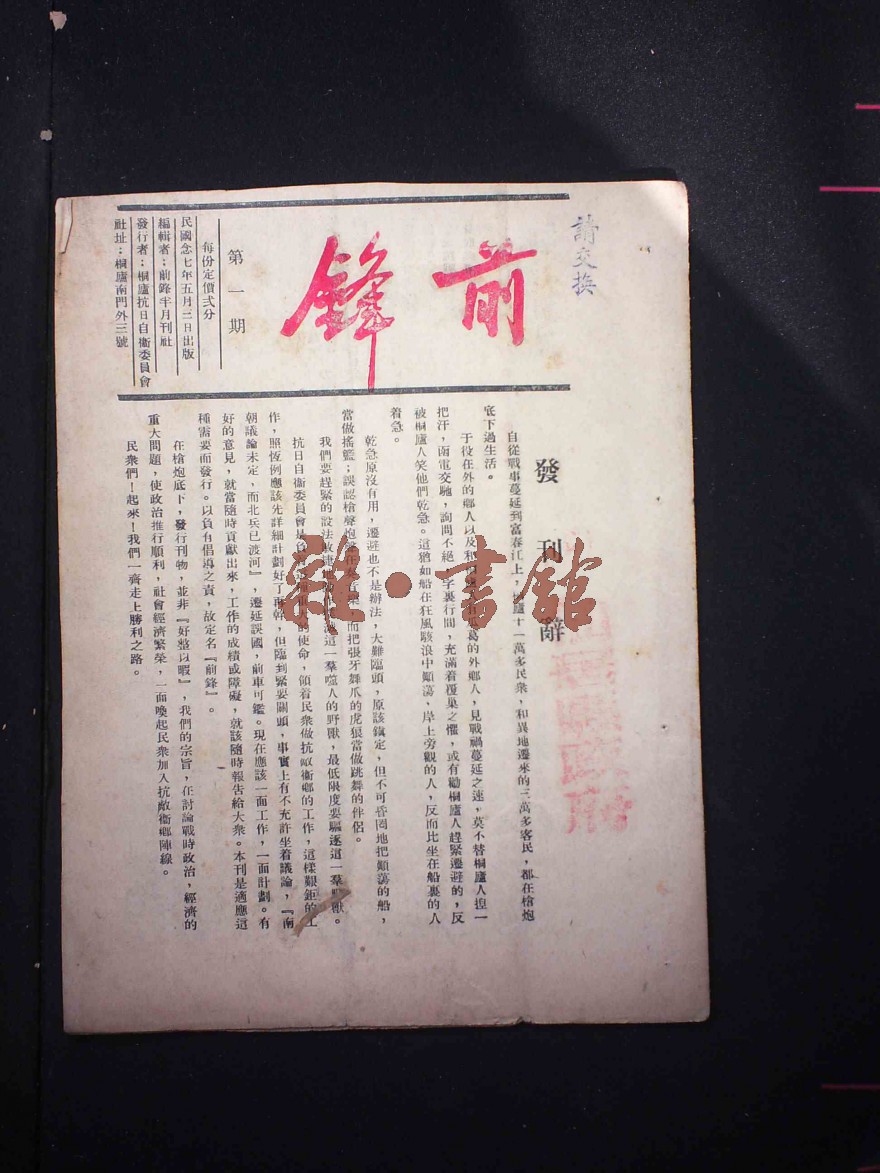 請交換
前鋒
第一期
每份定價弍分
民國念七年五月二日出版
編輯者：前鋒半月刊社
發行者：桐廬抗日自衞委員會
社址：桐廬南門外三號
發刊辭
自從戰事蔓延到富春江上，桐廬十一萬多民衆，和異地遷來的三萬多客民，都在槍炮
底下過生活。
于役在外的鄉人以及和葛的外鄉人，見戰禍蔓延之速，莫不替桐廬人揑一
把汗，函電交馳，詢問不絕，字裏行間，充滿着覆巢之懼，或有勸桐廬人趕緊遷避的，反
被桐廬人笑他們乾急。這猶如船在狂風駭浪中顚蕩，岸上旁觀的人，反而比坐在船裏的人
着急。
乾急原沒有用，遷避也不是辦法，大難臨頭，原該鎭定，但不可昏悶地把顚蕩的船，
當做搖籃；誤認槍聲炮聲在而把張牙舞爪的虎狼當做跳舞的伴侶。
我們要趕緊的設法敏捷地這一羣噬人的野獸，最低限度要驅逐這一羣獸。
抗日自衞委員會是的使命，領着民衆做抗敵衞鄉的工作，這樣艱鉅的工
作，照恆例應該先詳細計劃好了再幹，但臨到緊要關頭，事實上有不充許坐着議論，『南
朝議論未定，而北兵已渡河』，遷延誤國，前車可鑑。現在應該一面工作，一面計劃。有
好的意見，就當隨時貢獻出來，工作的成績或障礙，就該隨時報告給大衆。本刊是適應這
種需要而發行。以負有倡導之責，故定名『前鋒』。
在槍炮底下，發行刊物，並非『好整以暇』，我們的宗旨，在討論戰時政治，經濟的
重大問題，使政治推行順利，社會經濟繁榮，一面喚起民衆加入抗敵衞鄉陣線。
民衆們！起來！我們一齊走上勝利之路。
雜·書館